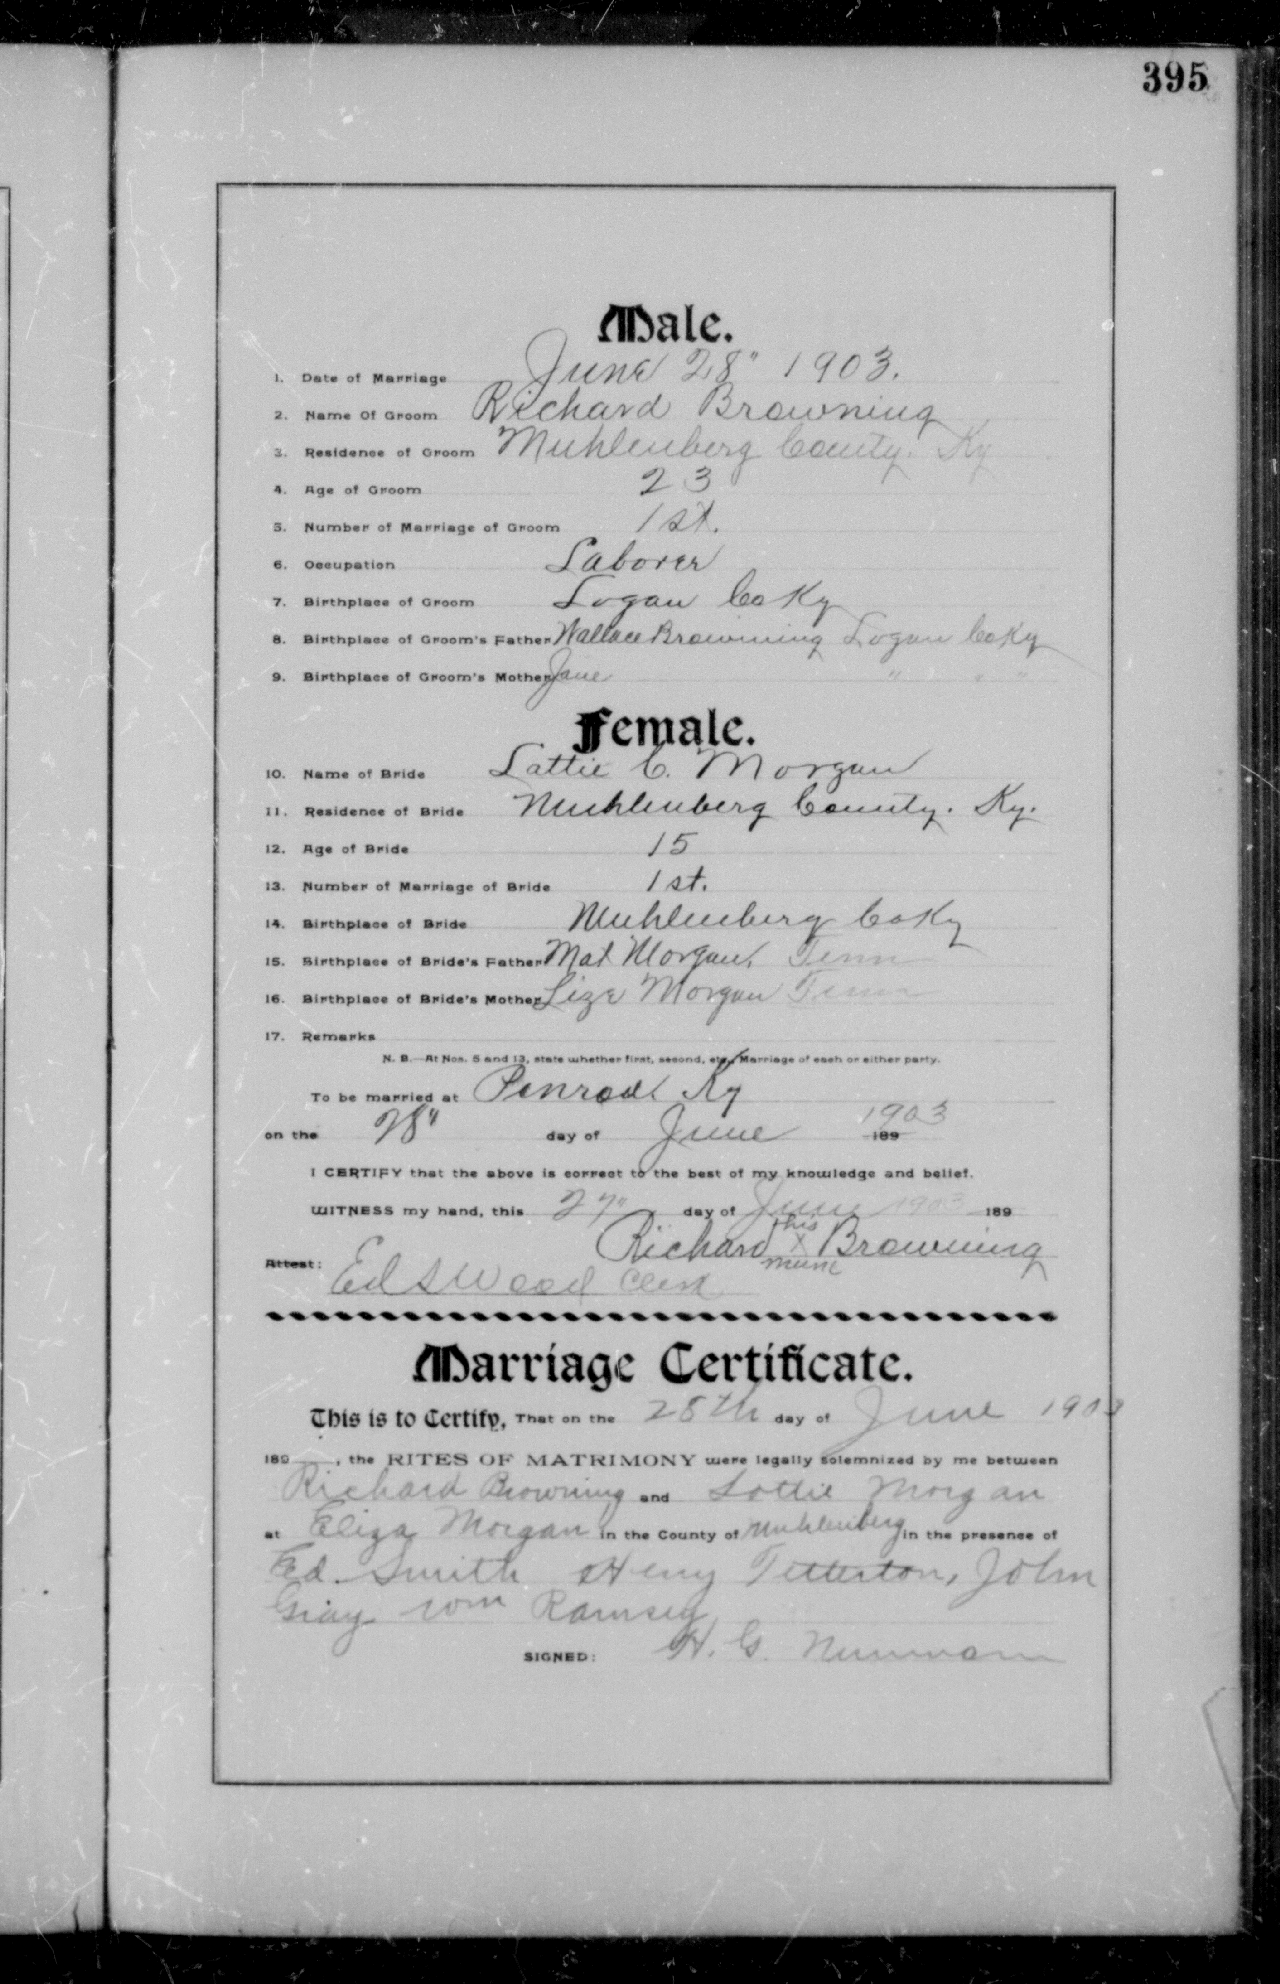 395
Male.
1. Date of Marriage June 28" 1903.
2. Name Of Groom Richard Browning
3. Residence of Groom Muhlenberg County. Ky
4. Age of Groom 23
5. Number of Marriage of Groom 1st.
6. Occupation Laborer
7. Birthplace of Groom Logan Co Ky
8. Birthplace of Groom's Father Wallace Browning Logan Co Ky
9. Birthplace of Groom's Mother Jane " " "
Female.
10. Name of Bride Lattie C. Morgan
11. Residence of Bride Muhlenberg County. Ky.
12. Age of Bride 15
13. Number of Marriage of Bride 1st.
14. Birthplace of Bride Muhlenberg Co Ky
15. Birthplace of Bride's Father Mat Morgan, Tenn
16. Birthplace of Bride's Mother Lize Morgan Tenn
17. Remarks
N. B.—At Nos. 5 and 13, state whether first, second, etc., Marriage of each or either party.
To be married at Penrod Ky
on the 28" day of June 1903 189
I CERTIFY that the above is correct to the best of my knowledge and belief.
WITNESS my hand, this 27" day of June 1903 189
his
Richard X Browning
Attest: Ed S Wood Clerk
Marriage Certificate.
This is to Certify, That on the 28th day of June 1903
189 , the RITES OF MATRIMONY were legally solemnized by me between
Richard Browning and Lottie Morgan
at Eliza Morgan in the County of Muhlenberg in the presence of
Ed. Smith Henry Tetterton, John
Gray Wm Ramsey
SIGNED: H. G.